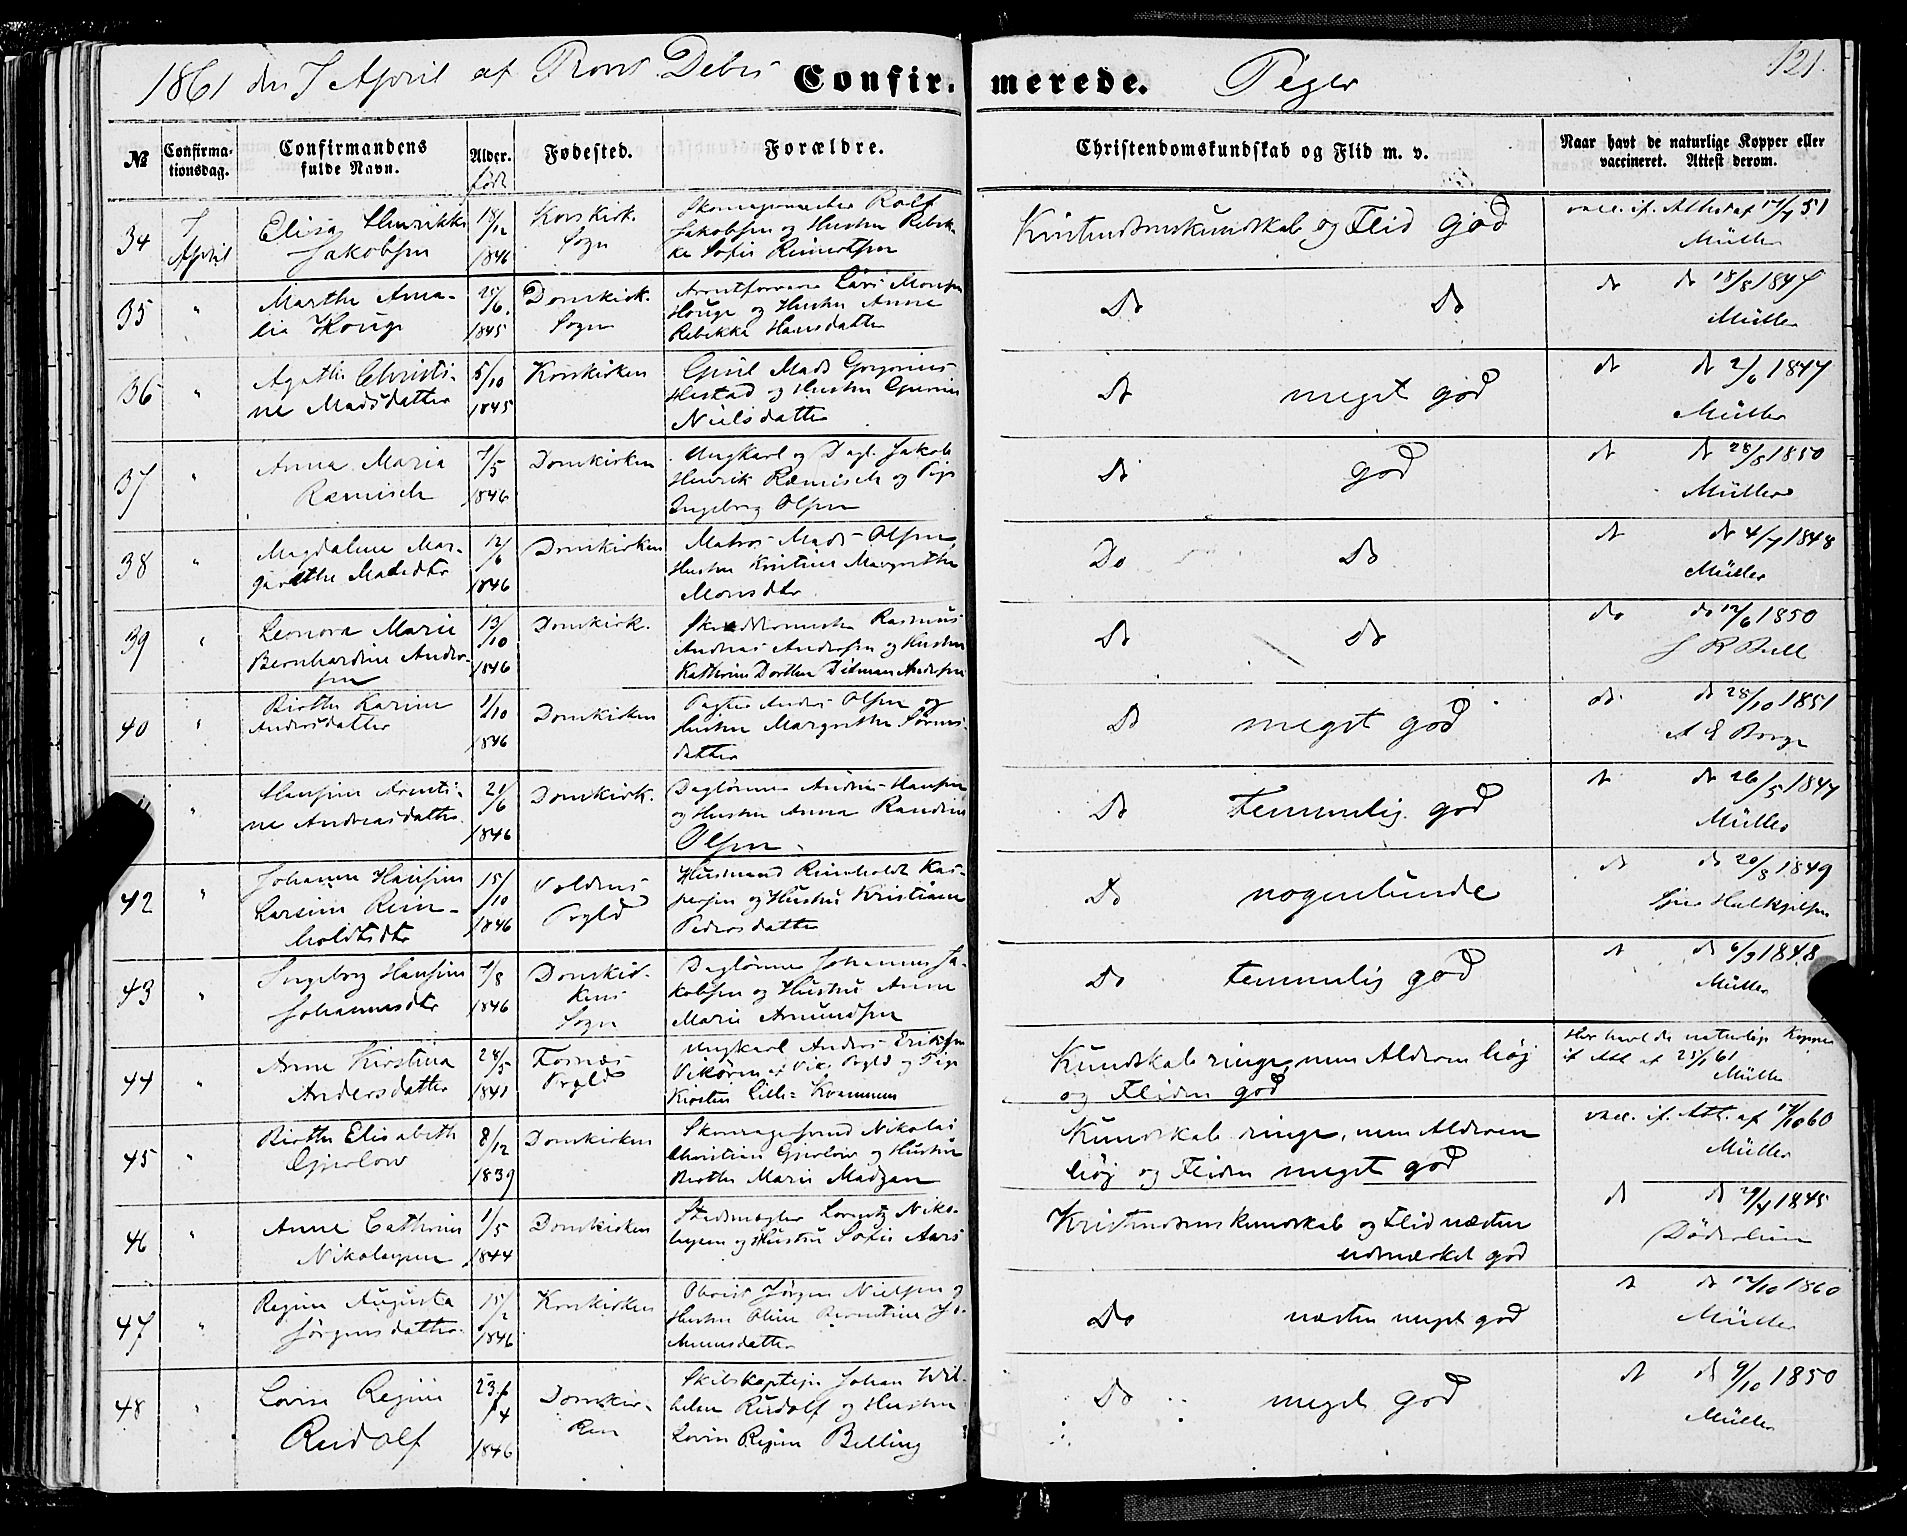 1861 den 7 April af Provst Debes Confirmerede. Piger 121.
№ Confirmationsdag. Confirmandens fulde Navn. Alder. født Fødested. Forældre. Christendomskundskab og Flid m. v. Naar havt de naturlige Kopper eller vaccineret. Attest derom.
34 7 April Elisa Henrikke Jakobsen 18/12 1846 Korskirk. Sogn
Skomagermester Rolf
Jakobsen og Hustru Rebek-
ka Sofie Reinertsen
Kristendomskundskab og Flid god
vacc. if. Attest af 17/7 51
Müller
35 " Marthe Ama-
lie Houge
25/6 1845
Domkirk.
Sogn
Lars Monsen
Houge og Hustru Anne
Rebekka Hansdatter
Do Do
do do 18/8 1847
Müller
36 " Agathe Christi-
ne Madsdatter
5/10
1845
Korskirken
Mads Gregorius
Hestad og Hustru
Nielsdatter
Do meget god
do do 2/6 1847
Müller
37 " Anna Maria
Ræmisch
7/5
1846
Domkirken
Ungkarl og Dagl. Jakob
Henrik Ræmisch og Pige
Ingeborg Olsen
Do god
do do 28/8 1850
Müller
38 " Magdalene Mar-
grethe Madsdtr
12/6
1846
Domkirken
Matros Mads Olsen,
Hustru Kristine Margrethe
Monsdtr.
Do Do
do do 4/7 1848
Müller
39 " Leonora Marie
Bernhardine Ander-
sen
13/10
1846
Domkirk.
Skræddermester Rasmus
Andreas Andersen og Hustru
Kathrine Dorthea Ditman Andersen
Do Do
do do 12/6 1850
J R Bull
40 " Birthe Karine
Andersdatter
1/10
1846
Domkirken
Anders Olsen og
Hustru Margrethe Sørens-
datter
Do meget god
do do 28/10 1851
A E Borge
" Hansine Arnti-
ne Andreasdatter
21/6
1846
Domkirk.
Daglønner Andreas Hansen
og Hustru Anna Randine
Olsen
Do temmelig god
do do 26/5 1847
Müller
42 " Johanne Hansine
Larsine Rein-
holdtsdtr
15/10
1846
Voldens
Prgld
Husmand Reinholdt Kas-
persen og Hustru Kristiane
Pedersdatter
Do nogenlunde
do do 20/8 1849
43 " Ingeborg Hansine
Johannesdtr
7/8
1846
Domkir-
kens
Sogn
Daglønner Johannes Ja-
kobsen og Hustru Anne
Marie Amundsen
Do temmelig god
do do 6/9 1848
Müller
44 " Anne Kirstina
Andersdatter
24/5
1841
Prgld
Ungkarl Anders Eriksen
Vikøren af Vik Prgld og Pige
Kirsten Lille-Kvammen
Kundskab ringe, men Alderen høj
og Fliden god
Har havt de naturlige Kopper
if Att af 25/1 61
Müller
45 " Birthe Elisabeth
Gjerlow
8/12
1839
Domkirken
Skomagersvend Nikolai
Christian Gjerlow og Hustru
Birthe Marie Madzen
Kundskab ringe, men Alderen
høj og Fliden meget god
vacc. if. Att. af 17/10 60
Müller
46 " Anne Cathrine
Nikolaysen
1/5
1844
Domkirken
Lorentz Niko-
laysen og Hustru Sofie Aars
Kristendomskundskab og Flid næsten
udmærket god
do do 29/4 1845
Döderlein
47 " Regine Augusta
Jørgensdatter
15/2
1846
Korskirken
Jørgen Nielsen og
Hustru Oline Berentine Jo-
annesdatter
Do næsten meget god
do do 12/10 1860
Müller
48 " Lovise Regine
Rudolf
23/4
1846
Domkir-
ken
Skibskaptejn Johan Wil-
helm Rudolf og Hustru
Lovise Regine Billing
Do meget god
do do 9/10 1850
Müller